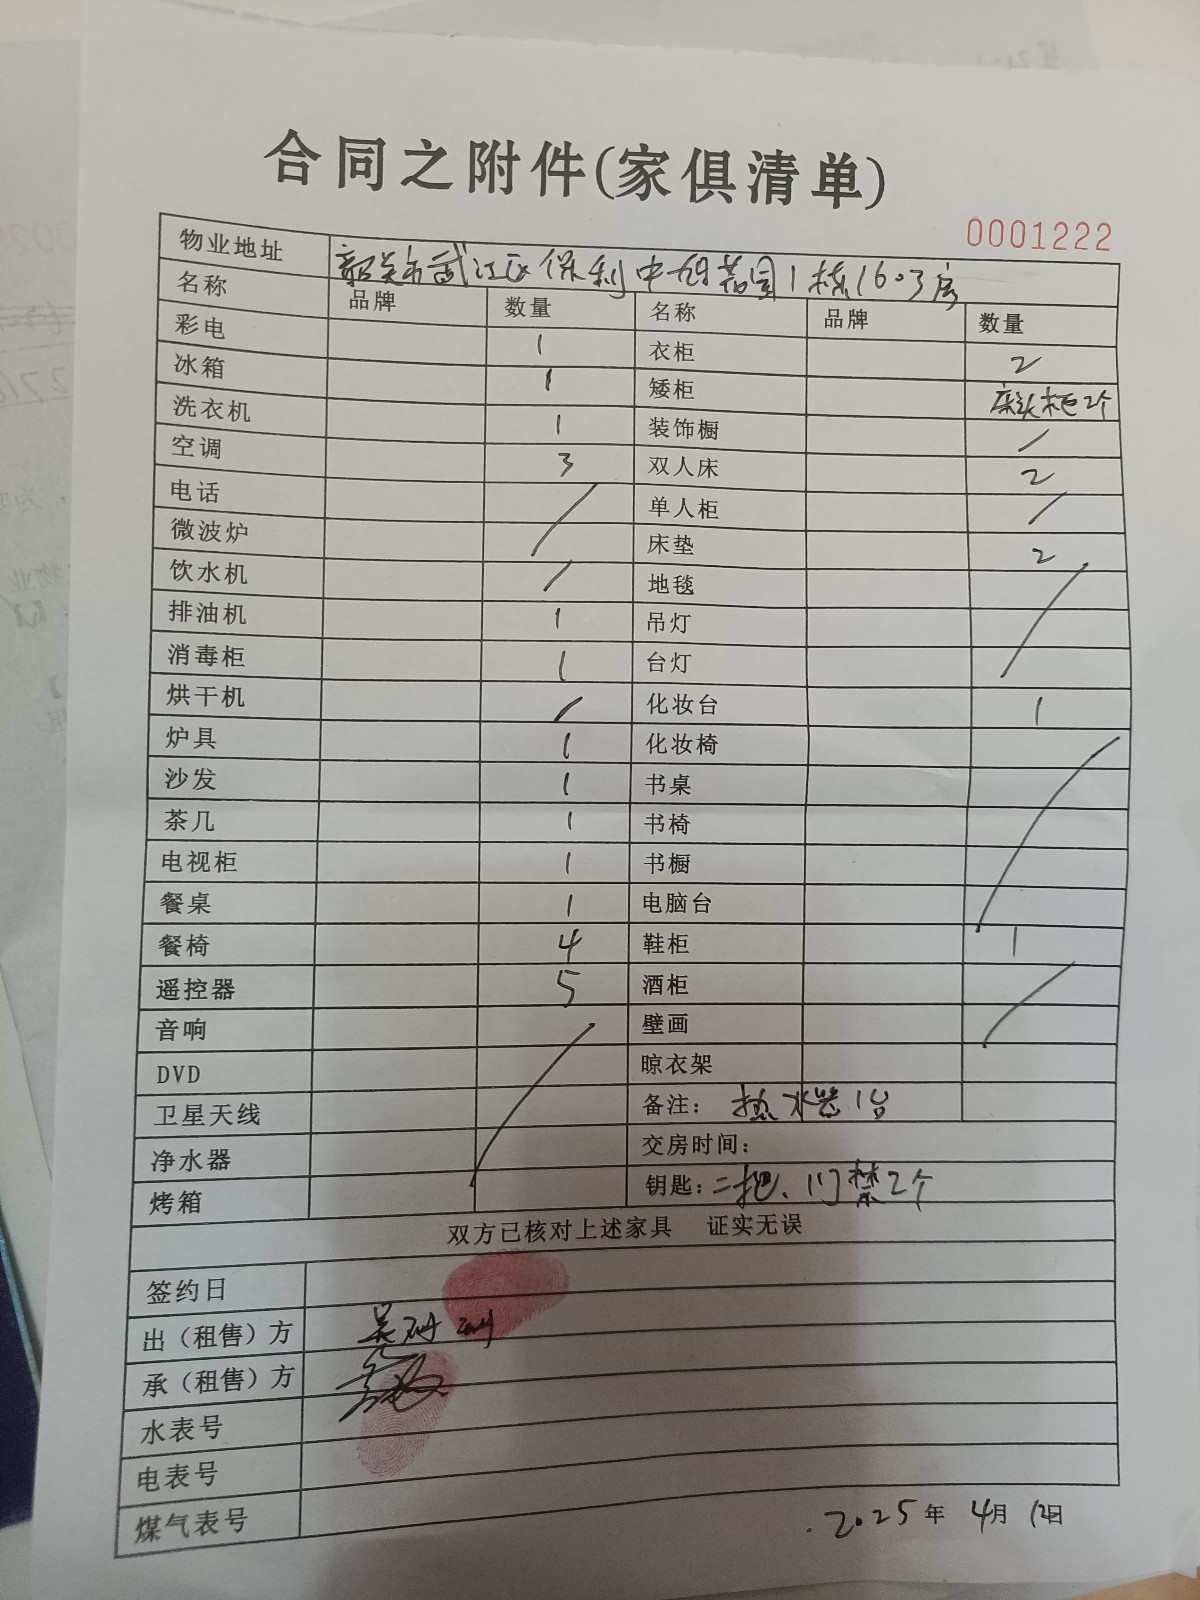 合同之附件(家俱清单)
0001222
物业地址 韶关市武江区保利中央花园1栋1603房
名称 品牌 数量 名称 品牌 数量
彩电 1 衣柜 2
冰箱 1 矮柜 床头柜2个
洗衣机 1 装饰橱 /
空调 3 双人床 2
电话 / 单人柜 /
微波炉 床垫 2
饮水机 / 地毯 /
排油机 1 吊灯
消毒柜 1 台灯
烘干机 / 化妆台 1
炉具 1 化妆椅 /
沙发 1 书桌
茶几 1 书椅
电视柜 1 书橱
餐桌 1 电脑台
餐椅 4 鞋柜 1
遥控器 5 酒柜 /
音响 / 壁画
DVD 晾衣架
卫星天线 备注: 热水器1台
净水器 交房时间:
烤箱 钥匙: 二把、门禁2个
双方已核对上述家具 证实无误
签约日
出（租售）方 吴
承（租售）方
水表号
电表号
煤气表号
2025年 4月 12日